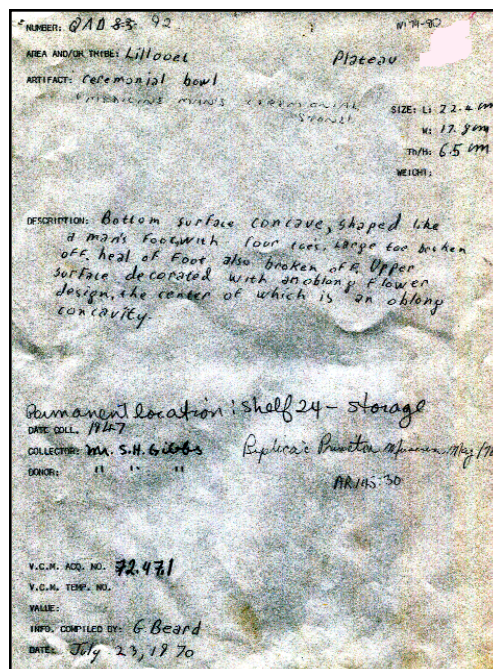 NUMBER: QAD 83 92
AREA AND/OR TRIBE: Lillooet Plateau
ARTIFACT: Ceremonial bowl
MEDICINE MAN'S CEREMONIAL
STONE
SIZE: L: 22.4 cm
W: 17.8 cm
Th/H: 6.5 cm
WEIGHT:
DESCRIPTION: Bottom surface concave, shaped like
a man's foot, with four toes. Large toe broken
off. heal of foot also broken off. Upper
surface decorated with an oblong flower
design, the center of which is an oblong
concavity.
Permanent location: Shelf 24 - storage
DATE COLL. 1947
COLLECTOR: Mr. S.H. Gibbs Replica: Museum May
DONOR: " " "
AR145.30
V.C.M. ACQ. NO. 72.47.1
V.C.M. TEMP. NO.
VALUE:
INFO. COMPILED BY: G Beard
DATE: July 23, 1970